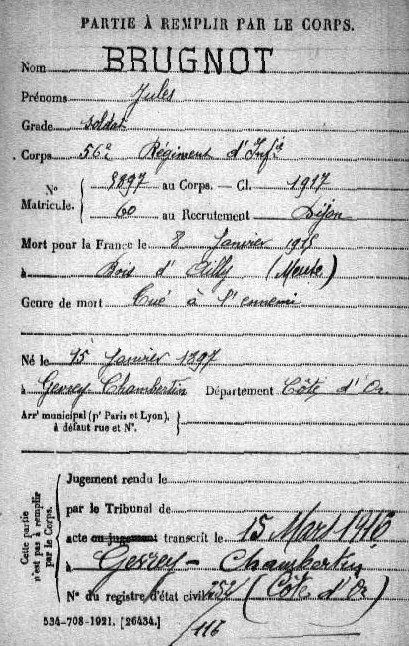 PARTIE À REMPLIR PAR LE CORPS.
Nom BRUGNOT
Prénoms Jules
Grade soldat
Corps 56e Régiment d'Infie
N° 9897 au Corps. — Cl. 1917
Matricule. 60 au Recrutement Dijon
Mort pour la France le 8 Janvier 1915
à Bois d'Ailly (Meuse)
Genre de mort Tué à l'ennemi
Né le 15 Janvier 1897
à Gevrey-Chambertin Département Côte d'Or
Arrt municipal (pr Paris et Lyon),
à défaut rue et N°.
Cette partie
n'est pas à remplir
par le Corps.
Jugement rendu le
par le Tribunal de
acte ou jugement transcrit le 15 Mars 1916
à Gevrey-Chambertin
N° du registre d'état civil (Côte d'Or)
534-708-1921. [26434.]
/116